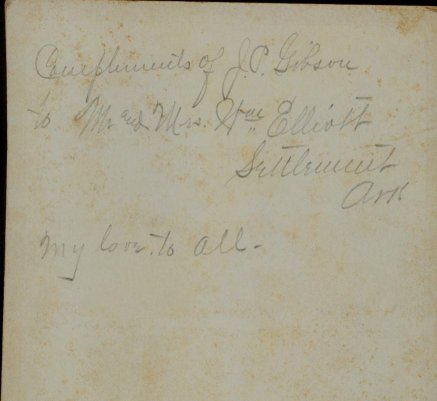 Compliments of J.P. Gibson
to Mr. and Mrs. Wm Elliott
Settlement
Ark
My love to all-